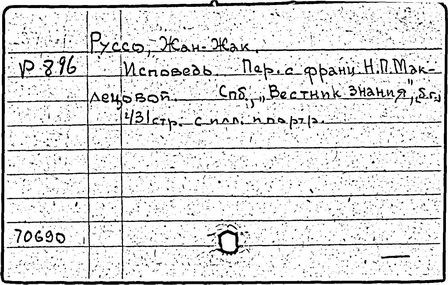 Руссо, Жан-Жак.
Р 896 Исповедь. Пер. с франц. Н.П. Мак-
лецовой. Спб., "Вестник знания", б.г.,
431 стр. с илл. и портр.
70690